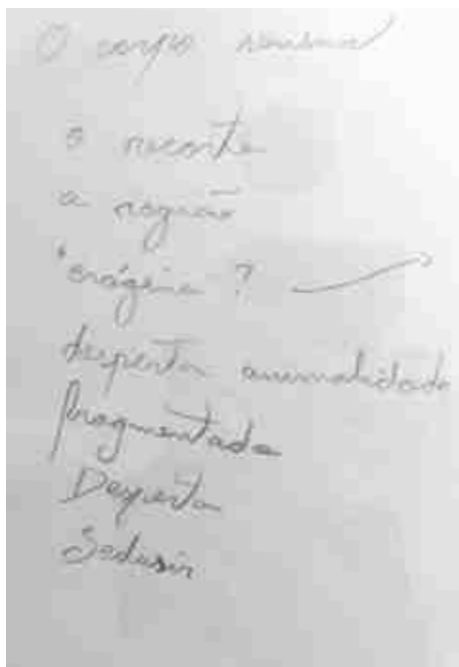 O corpo sensual
o recorte
a região
erógena ?
desperta animalidade
fragmentada
Desperta
Sedusir